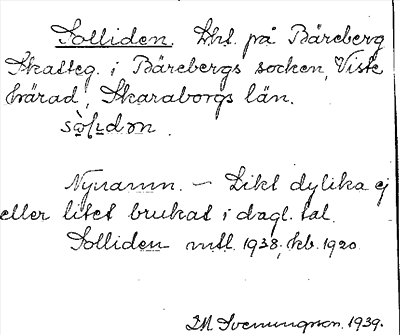 Solliden. Lht. på Bäreberg
Skatteg. i Bärebergs socken, Viste
härad, Skaraborgs län.
Nynamn. – Likt dylika ej
eller litet brukat i dagl. tal.
Solliden mtl. 1938, kb. 1920.
Svenungson. 1939.